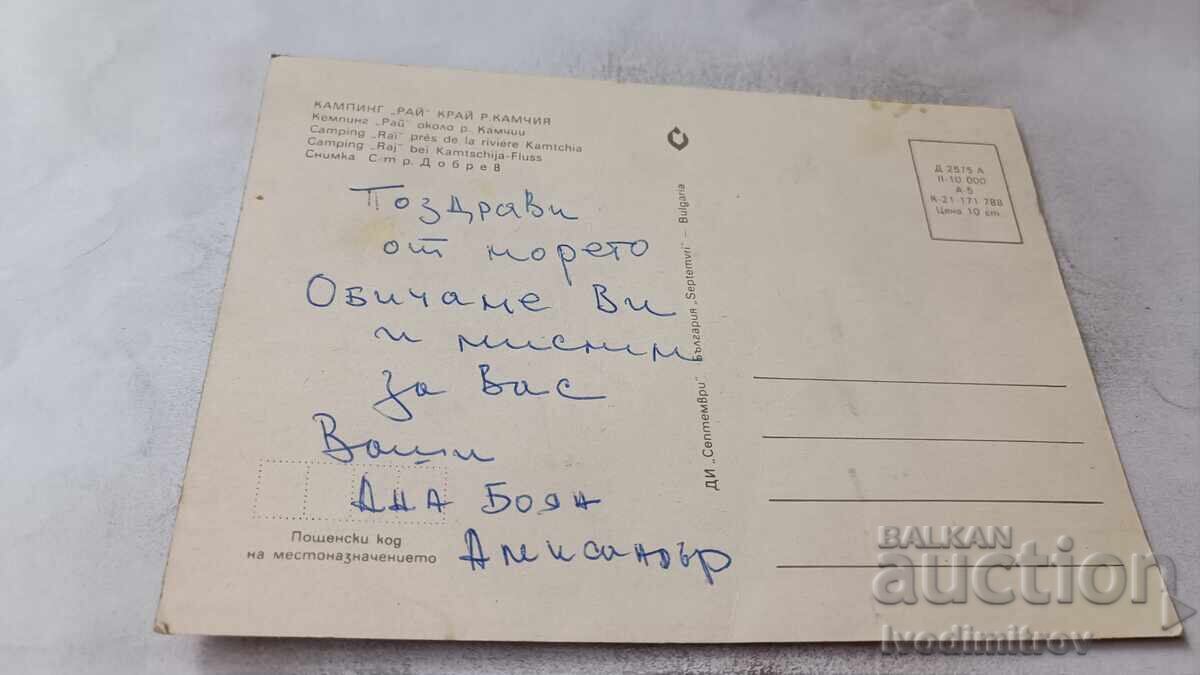 КАМПИНГ „РАЙ" КРАЙ Р.КАМЧИЯ
Кемпинг „Рай" около р. Камчии
Camping „Raï" près de la rivière Kamtchia
Camping „Raj" bei Kamtschija-Fluss
Снимка Стр. Добрев
Поздрави
от морето
Обичаме Ви
и мислим
за Вас
Ваши
Ана Боян
Александър
Пощенски код
на местоназначението
ДИ „Септември" България „Septemvri" — Bulgaria
Д 2575 А
II-10 000
А-5
К-21-171 788
Цена 10 ст.
BALKAN
auction
Ivodimitrov